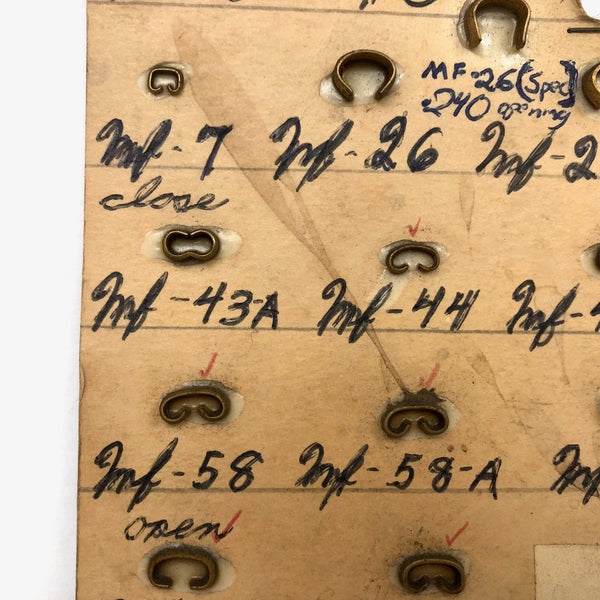 MF-26 (Spec)
.240 opening
Mf-7 Mf-26 Mf-2
close
Mf-43-A Mf-44 Mf-4
Mf-58 Mf-58-A Mf
open